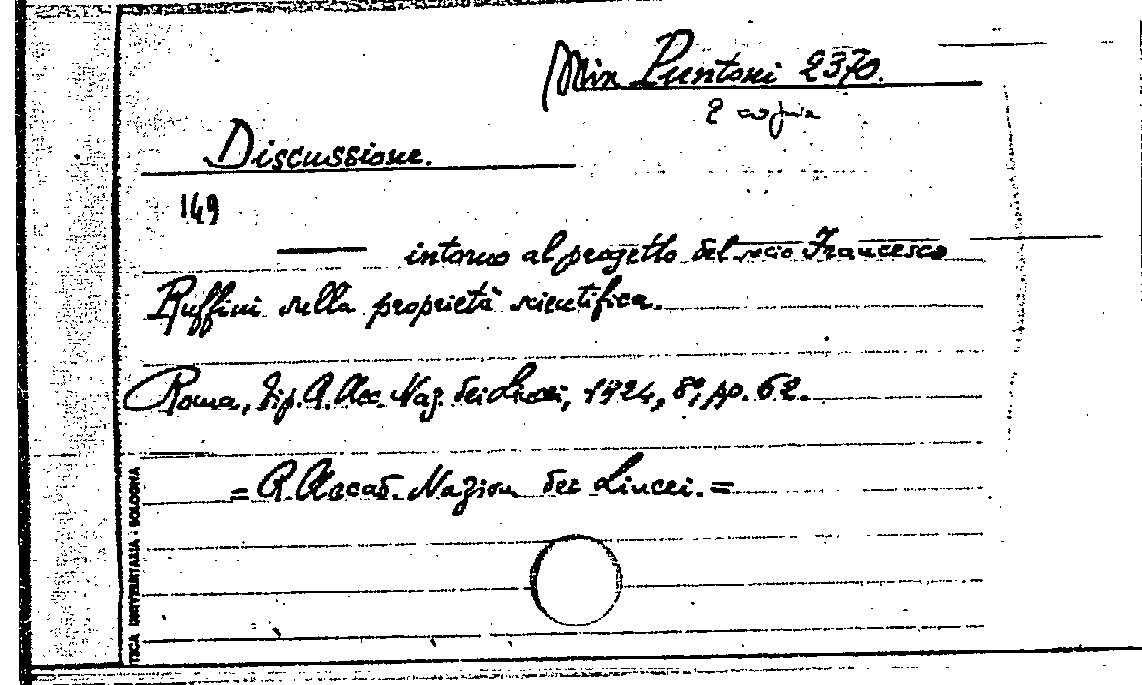 Mix Puntoni 2370.
2 copia
Discussione.
149
— intorno al progetto del socio Francesco
Ruffini sulla proprietà scientifica.
Roma, Tip. R. Acc. Naz. dei Lincei, 1924, 8°, pp. 62.
= R. Accad. Nazion dei Lincei. =
TECA BOLOGNA